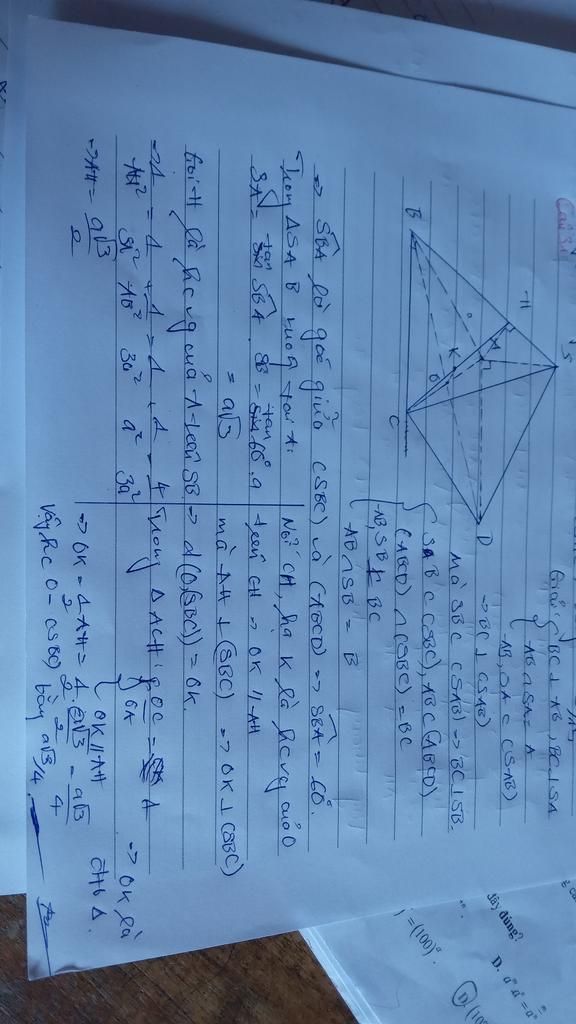 Câu 3:
Giải
BC ⊥ AB, BC ⊥ SA
AB ∩ SA = A
AB, SA ⊂ (SAB)
→ BC ⊥ (SAB)
Mà SB ⊂ (SAB) → BC ⊥ SB.
SB ⊂ (SBC), AB ⊂ (ABCD)
(ABCD) ∩ (SBC) = BC
AB, SB ⊥ BC
AB ∩ SB = B
S
H
A
D
K
O
B
C
⇒ SBA là góc giữa (SBC) và (ABCD) ⇒ SBA = 60°.
Trong ΔSAB vuông tại A:
SA = tan SBA . = tan 60°. a
= a√3
Gọi H là hc vg của A trên SB
→ 1/AH² = 1/SA² + 1/AB² = 1/3a² + 1/a² = 4/3a²
→ AH = a√3/2
Nối CH, hạ K là hc vg của O
trên CH → OK // AH
mà AH ⊥ (SBC) → OK ⊥ (SBC)
→ d(O,(SBC)) = OK.
Trong ΔACH: OC = OA
OK // AH
→ OK là
Δ.
→ OK = 1/2 AH = 1/2 . a√3/2 = a√3/4
Vậy O - (SBC) bằng a√3/4.
đây đúng?
D.
= (100)
D.